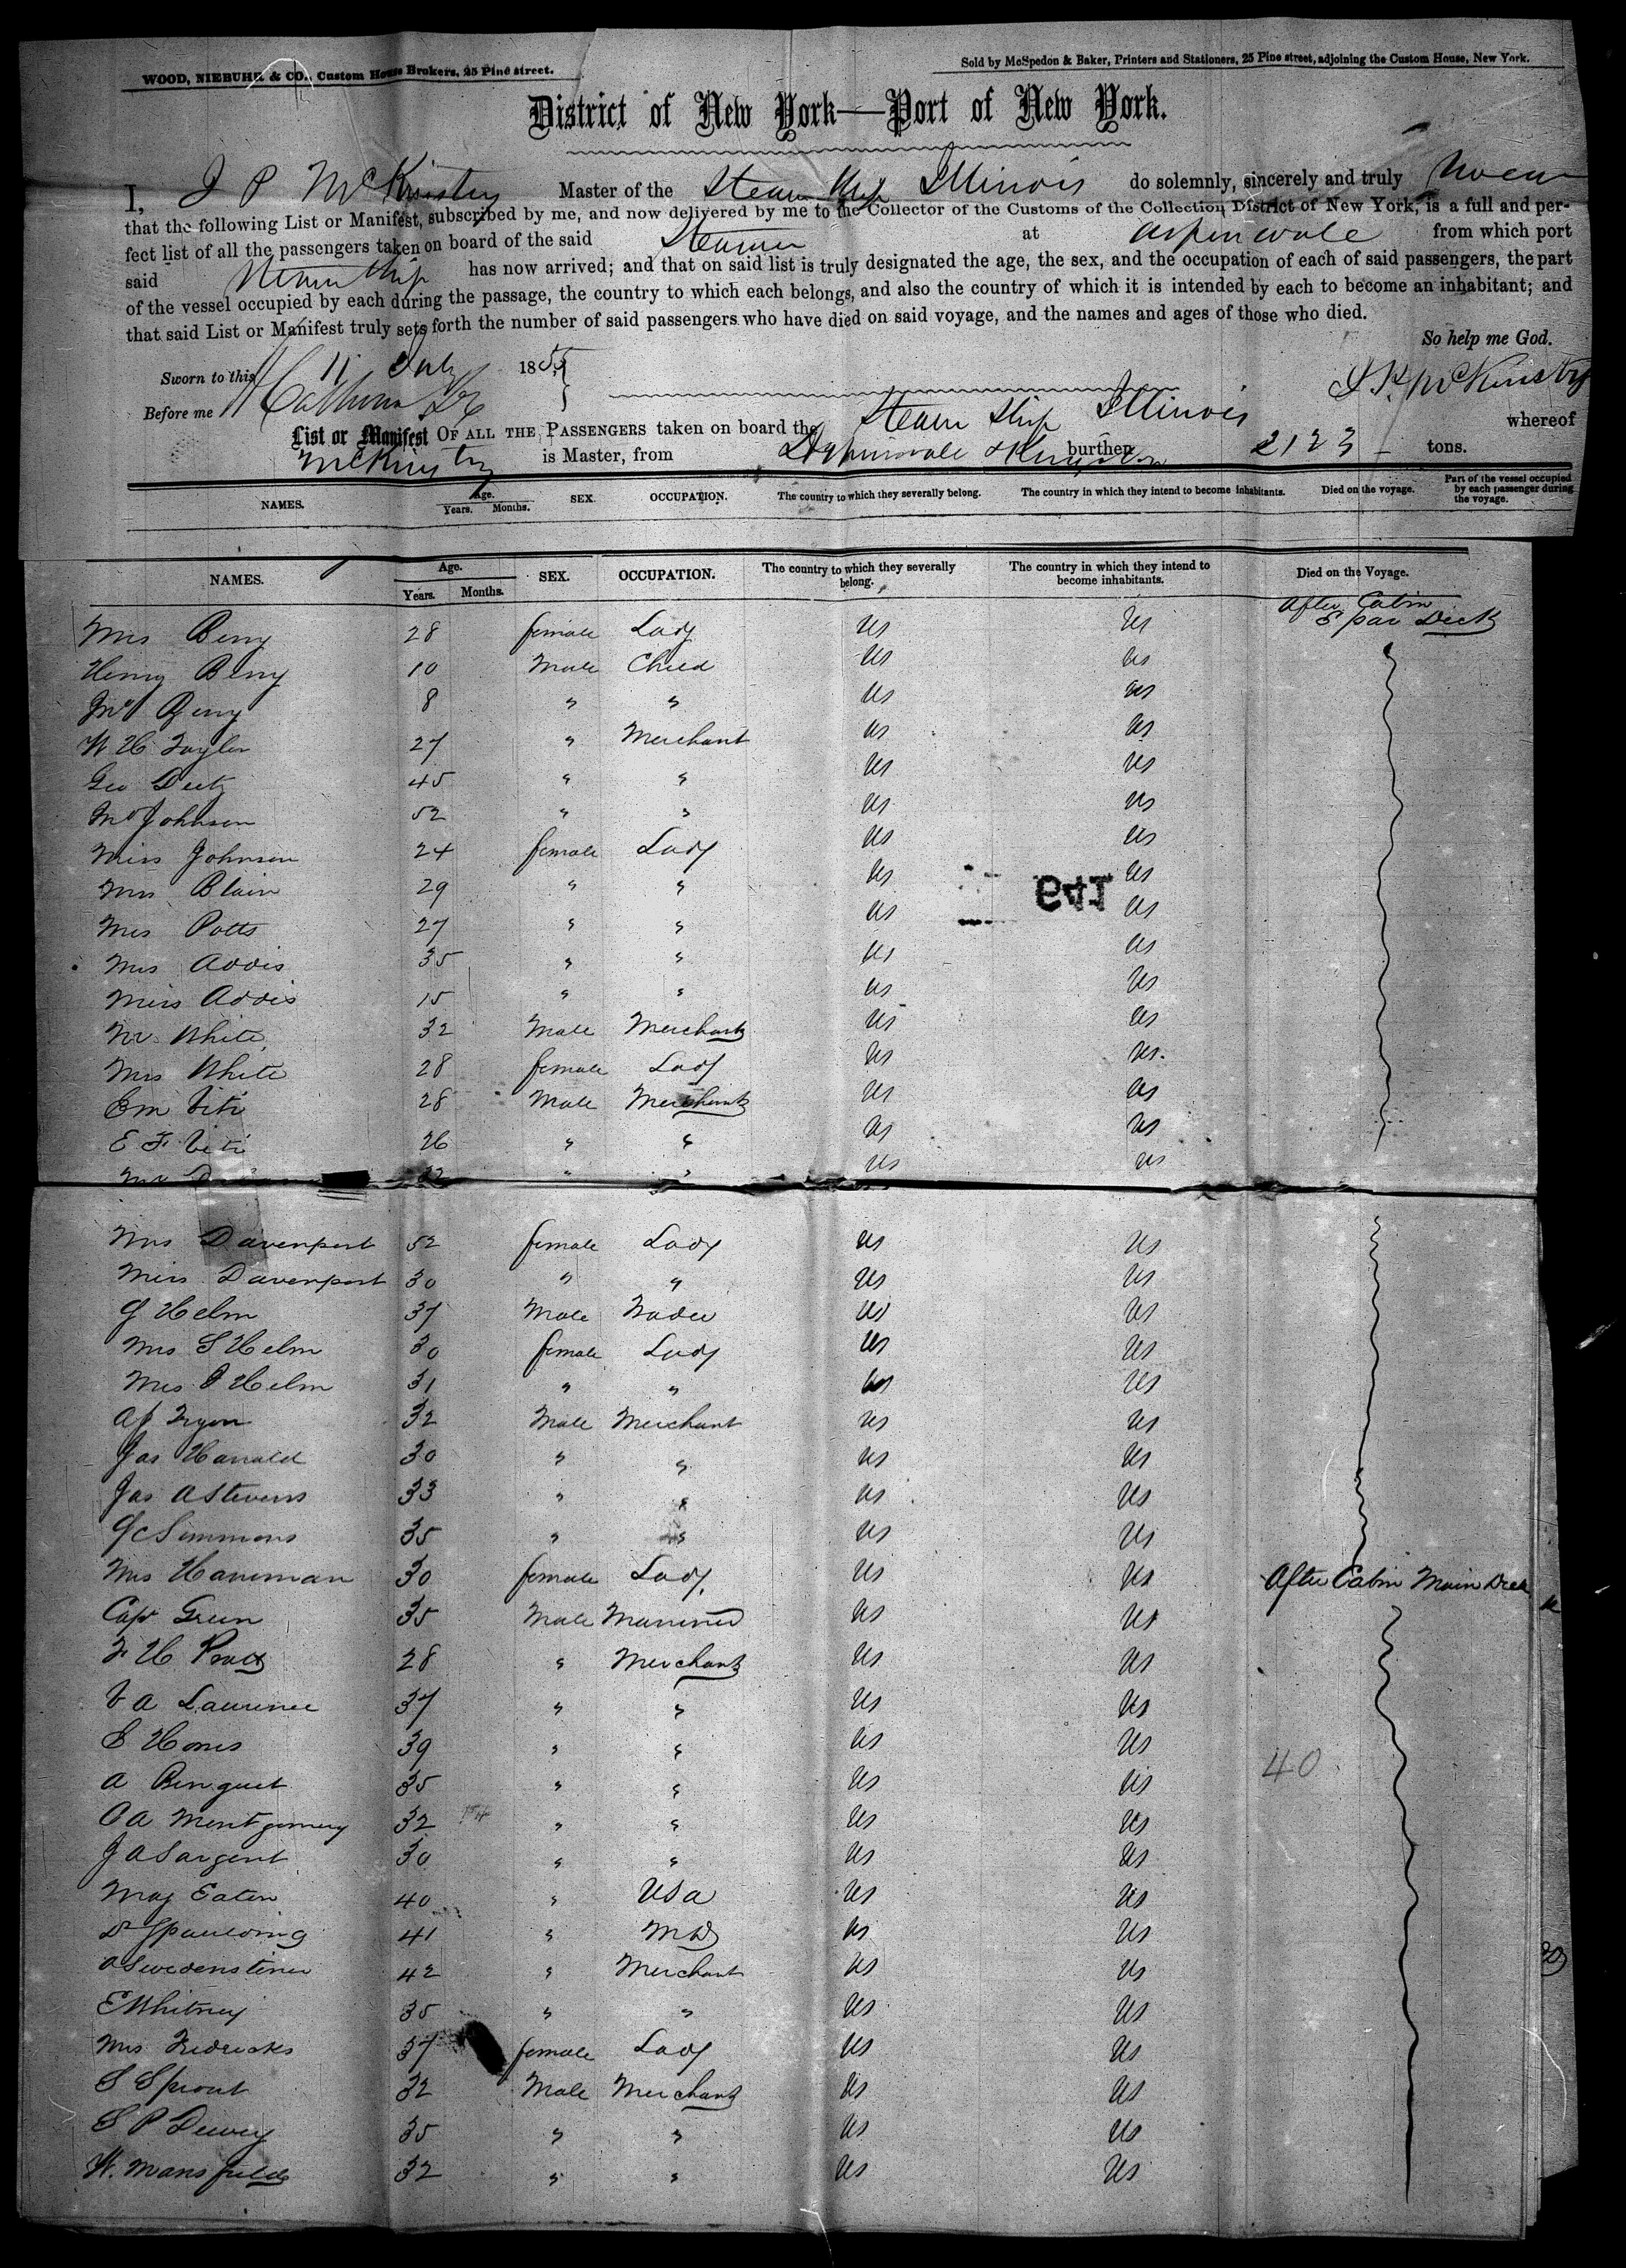 WOOD, NIEBUHR & CO., Custom House Brokers, 25 Pine street.
Sold by McSpedon & Baker, Printers and Stationers, 25 Pine street, adjoining the Custom House, New York.
District of New York—Port of New York.
I, J P McKinstry Master of the Steam Ship Illinois do solemnly, sincerely and truly swear
that the following List or Manifest, subscribed by me, and now delivered by me to the Collector of the Customs of the Collection District of New York, is a full and per-
fect list of all the passengers taken on board of the said Steamer at Aspinwale from which port
said Steam Ship has now arrived; and that on said list is truly designated the age, the sex, and the occupation of each of said passengers, the part
of the vessel occupied by each during the passage, the country to which each belongs, and also the country of which it is intended by each to become an inhabitant; and
that said List or Manifest truly sets forth the number of said passengers who have died on said voyage, and the names and ages of those who died.
So help me God.
Sworn to this 11 July 1855
Before me
McKinstry
List or Manifest OF ALL THE PASSENGERS taken on board the Steam Ship Illinois whereof
McKinstry is Master, from Aspinwale & Kingston burthen 2123 tons.
NAMES. Age. Years. Months. SEX. OCCUPATION. The country to which they severally belong. The country in which they intend to become inhabitants. Died on the voyage. Part of the vessel occupied by each passenger during the voyage.
NAMES. Age. Years. Months. SEX. OCCUPATION. The country to which they severally belong. The country in which they intend to become inhabitants. Died on the Voyage.
After Cabin Spar Deck
Mrs Berry 28 female Lady US US
Henry Berry 10 Male Child US US
Berry 8 " " US US
W H Taylor 27 " Merchant US US
Geo Deetz 45 " " US US
Johnson 52 " " US US
Miss Johnson 24 female Lady US US
Mrs Blain 29 " " US US
149
Mrs Potts 27 " " US US
Mrs Addis 35 " " US US
Miss Addis 15 " " US US
Mr White 32 Male Merchant US US
Mrs White 28 female Lady US US
Em Viti 28 Male Merchant US US
E F Viti 26 " " US US
Mr 32 " " US US
Mrs Davenport 52 female Lady US US
Miss Davenport 30 " " US US
J Helm 37 Male Trader US US
Mrs S Helm 30 female Lady US US
Mrs J Helm 31 " " US US
A J Tryon 32 Male Merchant US US
Jas Harrald 30 " " US US
Jas A Stevens 33 " " US US
J C Simmons 35 " " US US
Mrs Haneman 30 female Lady US US After Cabin Main Deck
Cap Green 35 Male Marriner US US
F H Pratt 28 " Merchant US US
V A Laurence 37 " " US US
S Hones 39 " " US US
40
A Binguet 35 " " US US
C A Montgomery 32 " " US US
J A Sargent 30 " " US US
Maj Eaten 40 " USA US US
Dr Spaulding 41 " MD US US
A Swedenstiner 42 " Merchant US US
E Whitney 35 " " US US
Mrs Fredericks 37 female Lady US US
S Sprout 32 Male Merchant US US
S P Dewey 35 " " US US
W. Mansfield 32 " " US US